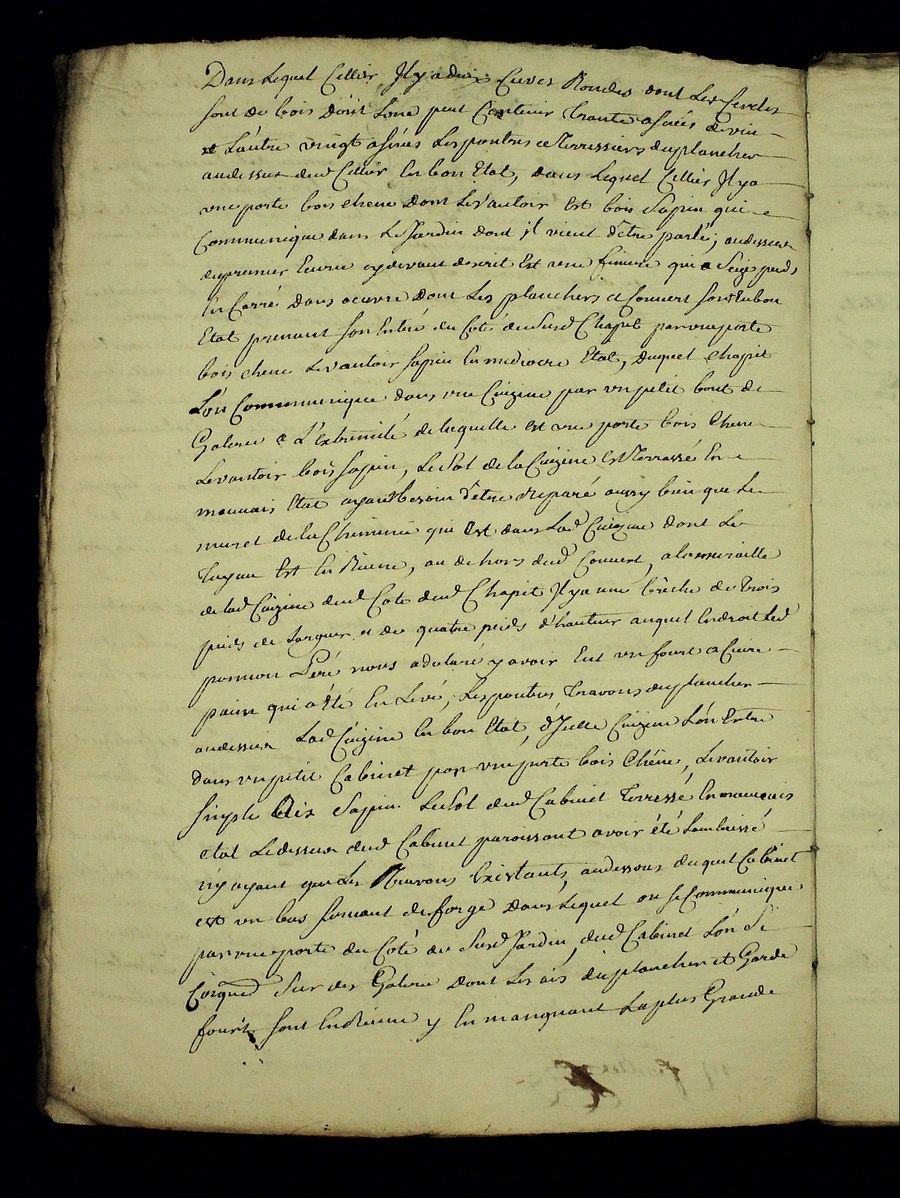 Dans Lequel Cellier Il y a deux Cuves Rondes dont Les Cercles
sont de bois dont Lune peut Contenir Trante asnées de vin
et Lautre vingt asnées Les poutres et Terrassiers du plancher
audessus dud Cellier En bon Etat, dans Lequel Cellier Il y a
une porte bois chene dont Le vantoir Est bois Sapin qui
Communique dans Le Jardin dont il vient d'être parlé; audessus
du premier Ecurie cy devant descrit Est une feniere qui a Seize pieds
En Carré dans oeuvre dont Les planchers et Couvert sont En bon
Etat prenant Son Entrée du Coté du Susd Chapit par une porte
bois chene Le vantoir Sapin En mediocre Etat, duquel Chapit
L'on Communique dans une Cuizine par un petit bout de
Galerie a L'extremité de laquelle est une porte bois Chene
Le vantoir bois Sapin, Le Sol de la Cuizine est Terrassé En
mauvais Etat ayant besoin d'être reparé aussy bien que Le
muret de la Cheminée qui Est dans Lad Cuizine dont Le
Tuyau Est En Ruine, au dehors dud Couvert, a la muraille
de lad Cuizine dud Coté dud Chapit Il y a une brêche de Trois
pieds de Largeur et de quatre pieds d'hauteur auquel Endroit Led
pomion Peré nous a declaré y avoir Eut un fourt a Cuire
pain qui a été En Levé, Les poutres Travons du plancher
audessus Lad Cuizine En bon Etat, d'Icelle Cuizine L'on Entre
dans un petit Cabinet par une porte bois Chêne, Le vantoir
simple Sapin Le Sol dud Cabinet Terrassé En mauvais
etat Le dessus dud Cabinet paroissant avoir été Lambrissé
n'y ayant que Les Travons Existants, audessous duquel Cabinet
est un bas Servant de forge dans Lequel on se Communique
par une porte du Coté du Susd Jardin, dud Cabinet L'on Se
Sur des Galerie dont Les ais du plancher et Garde
fourt Sont En Ruine y En manquant La plus Grande